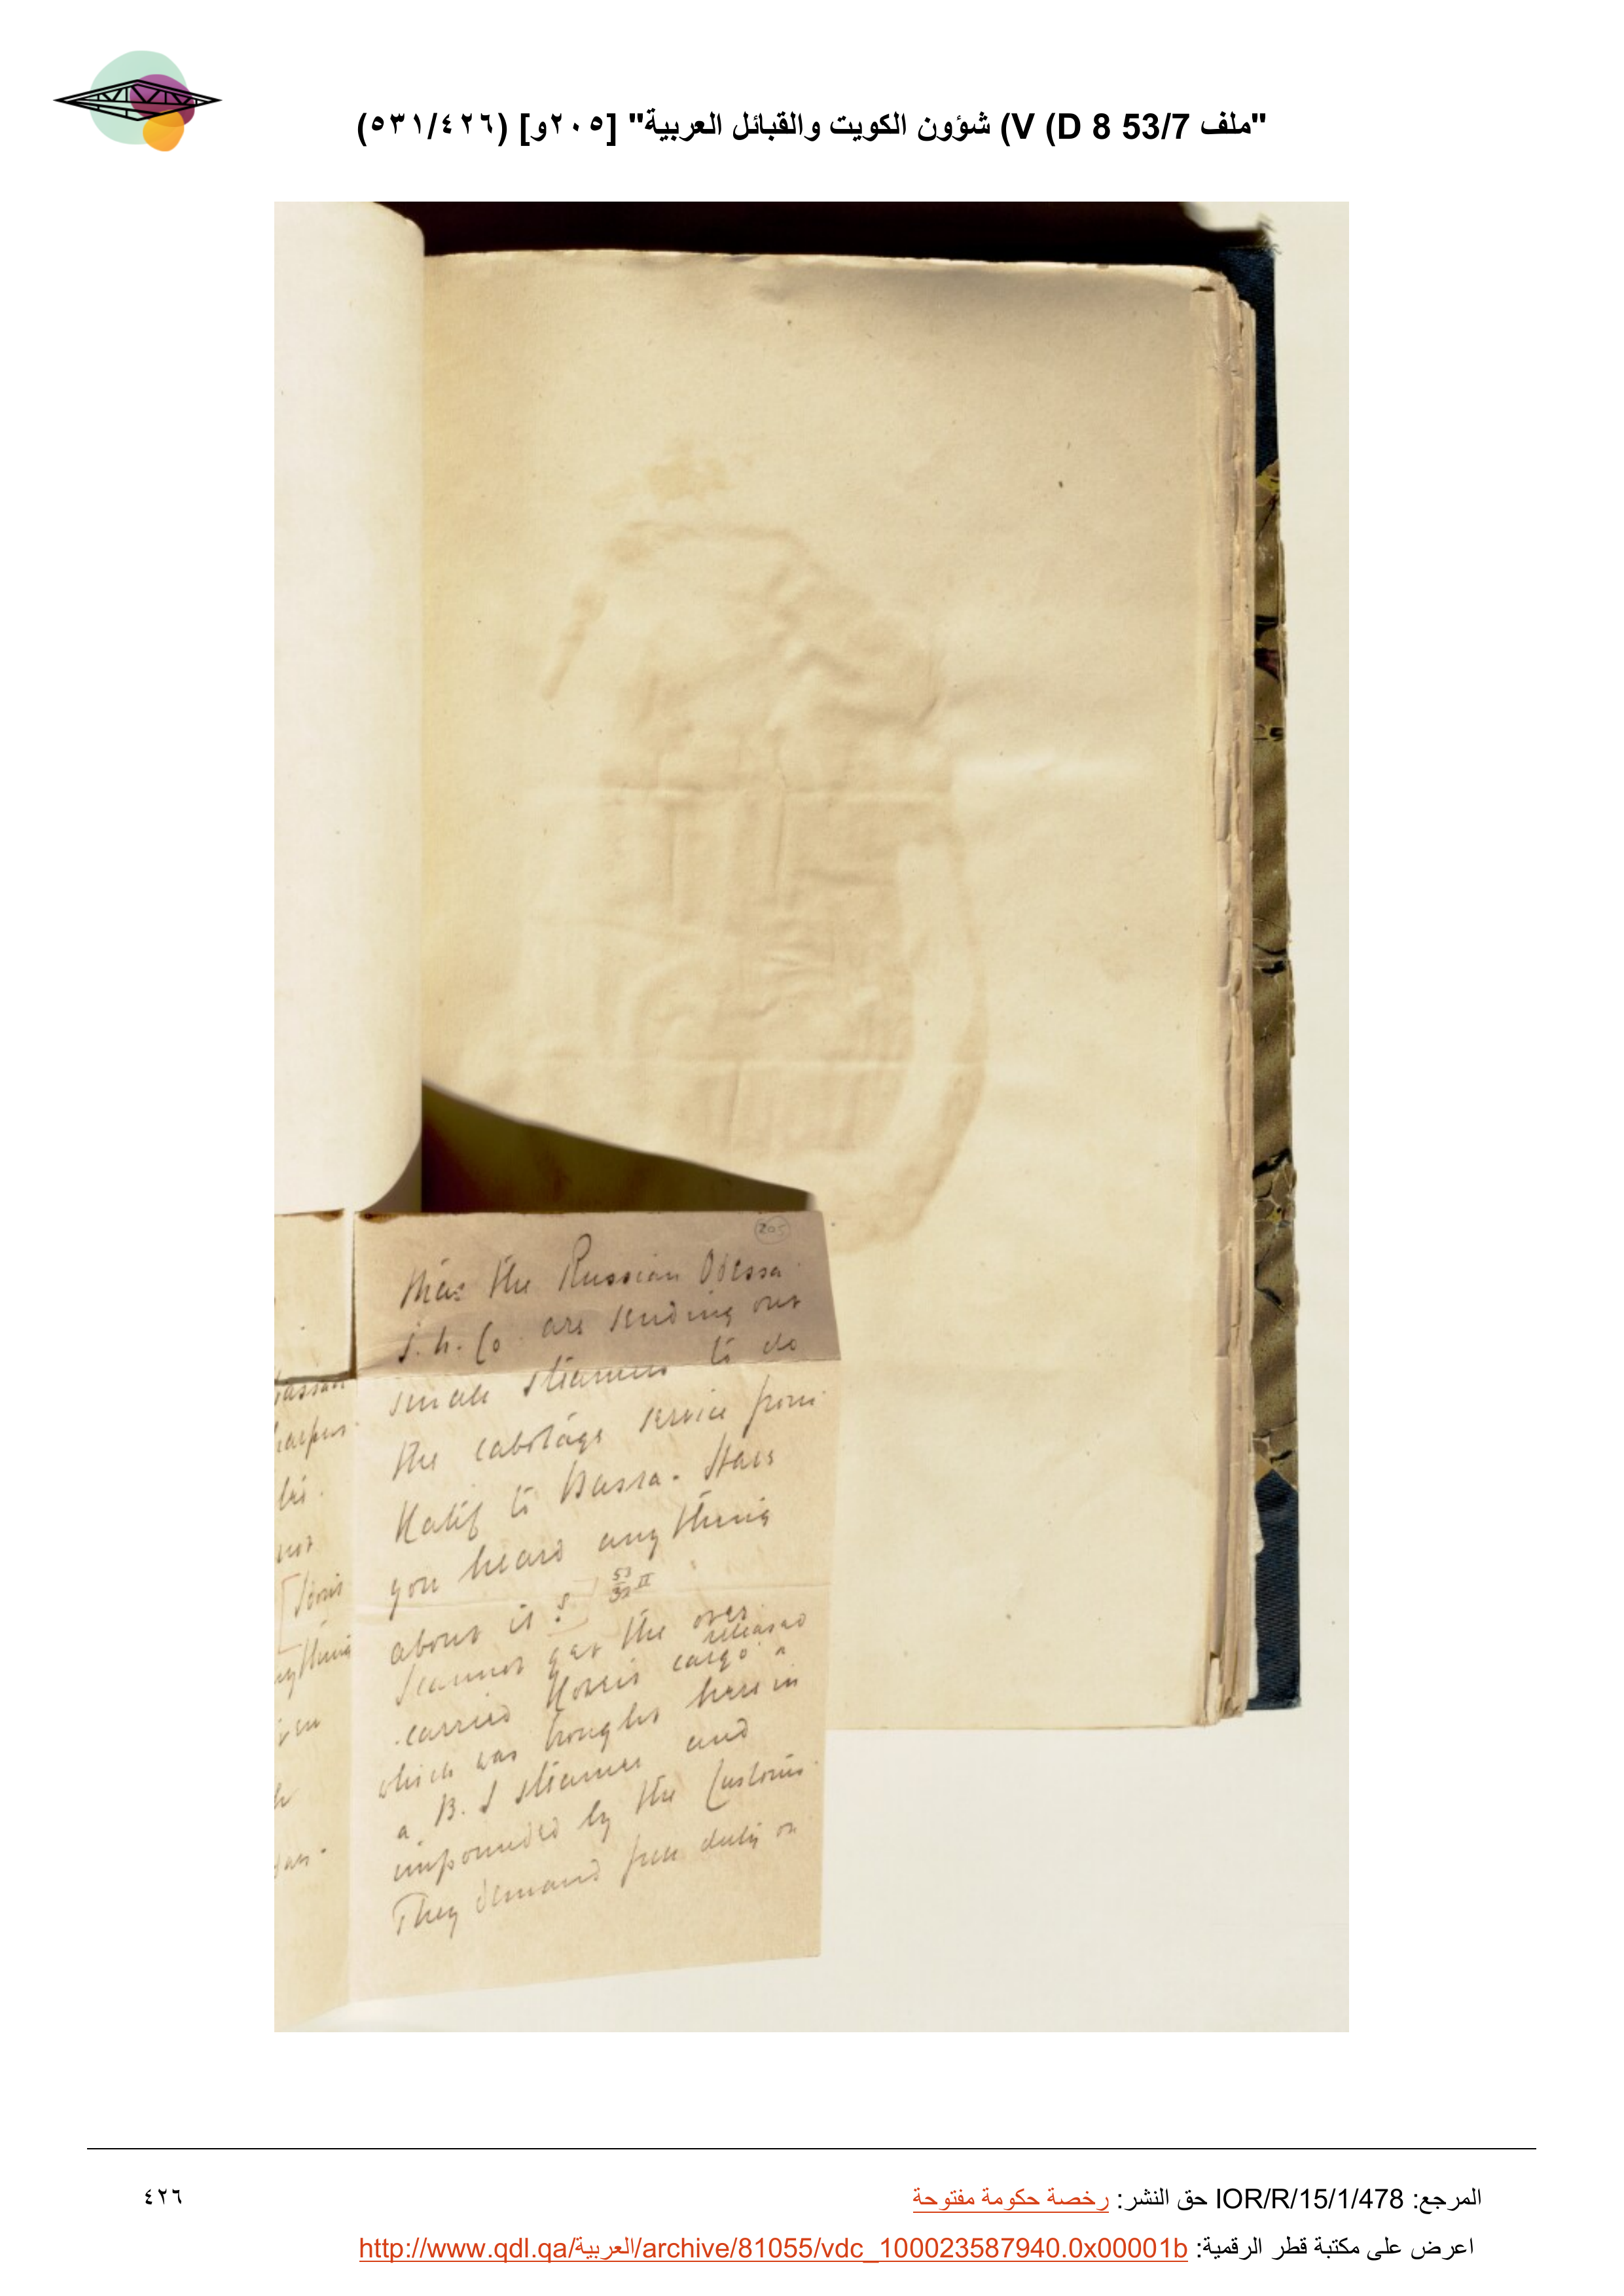 "ملف 53/7 D 8) V) شؤون الكويت والقبائل العربية" [٢٠٥و] (٥٣١/٤٢٦)
205
that the Russian Odessa
S. N. Co are sending out
small steamers to do
the cabotage service from
Katif to Bussra. Have
you heard anything
about it?
53/32 II
I cannot get the over
carried Koweit cargo released
which was brought here in
a B. I steamer and
impounded by the Customs.
They demand full duty on
anything
المرجع: IOR/R/15/1/478 حق النشر: رخصة حكومة مفتوحة
٤٢٦
اعرض على مكتبة قطر الرقمية: http://www.qdl.qa/العربية/archive/81055/vdc_100023587940.0x00001b